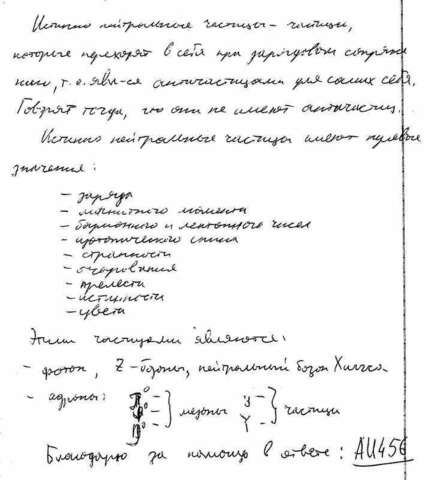 Истинно нейтральные частицы - частицы,
которые переходят в себя при зарядовом сопряже
нии, т.е. явл-ся античастицами для самих себя.
Говорят тогда, что они не имеют античастиц.
Истинно нейтральные частицы имеют нулевые
значения:
- заряда
- магнитного момента
- барионного и лептонного чисел
- изотопического спина
- странности
- очарования
- прелести
- истинности
- цвета
Этими частицами являются:
- фотон, Z-бозоны, нейтральный бозон Хиггса.
- адроны:
мезоны
частицы
Благодарю за помощь в ответе: AU456